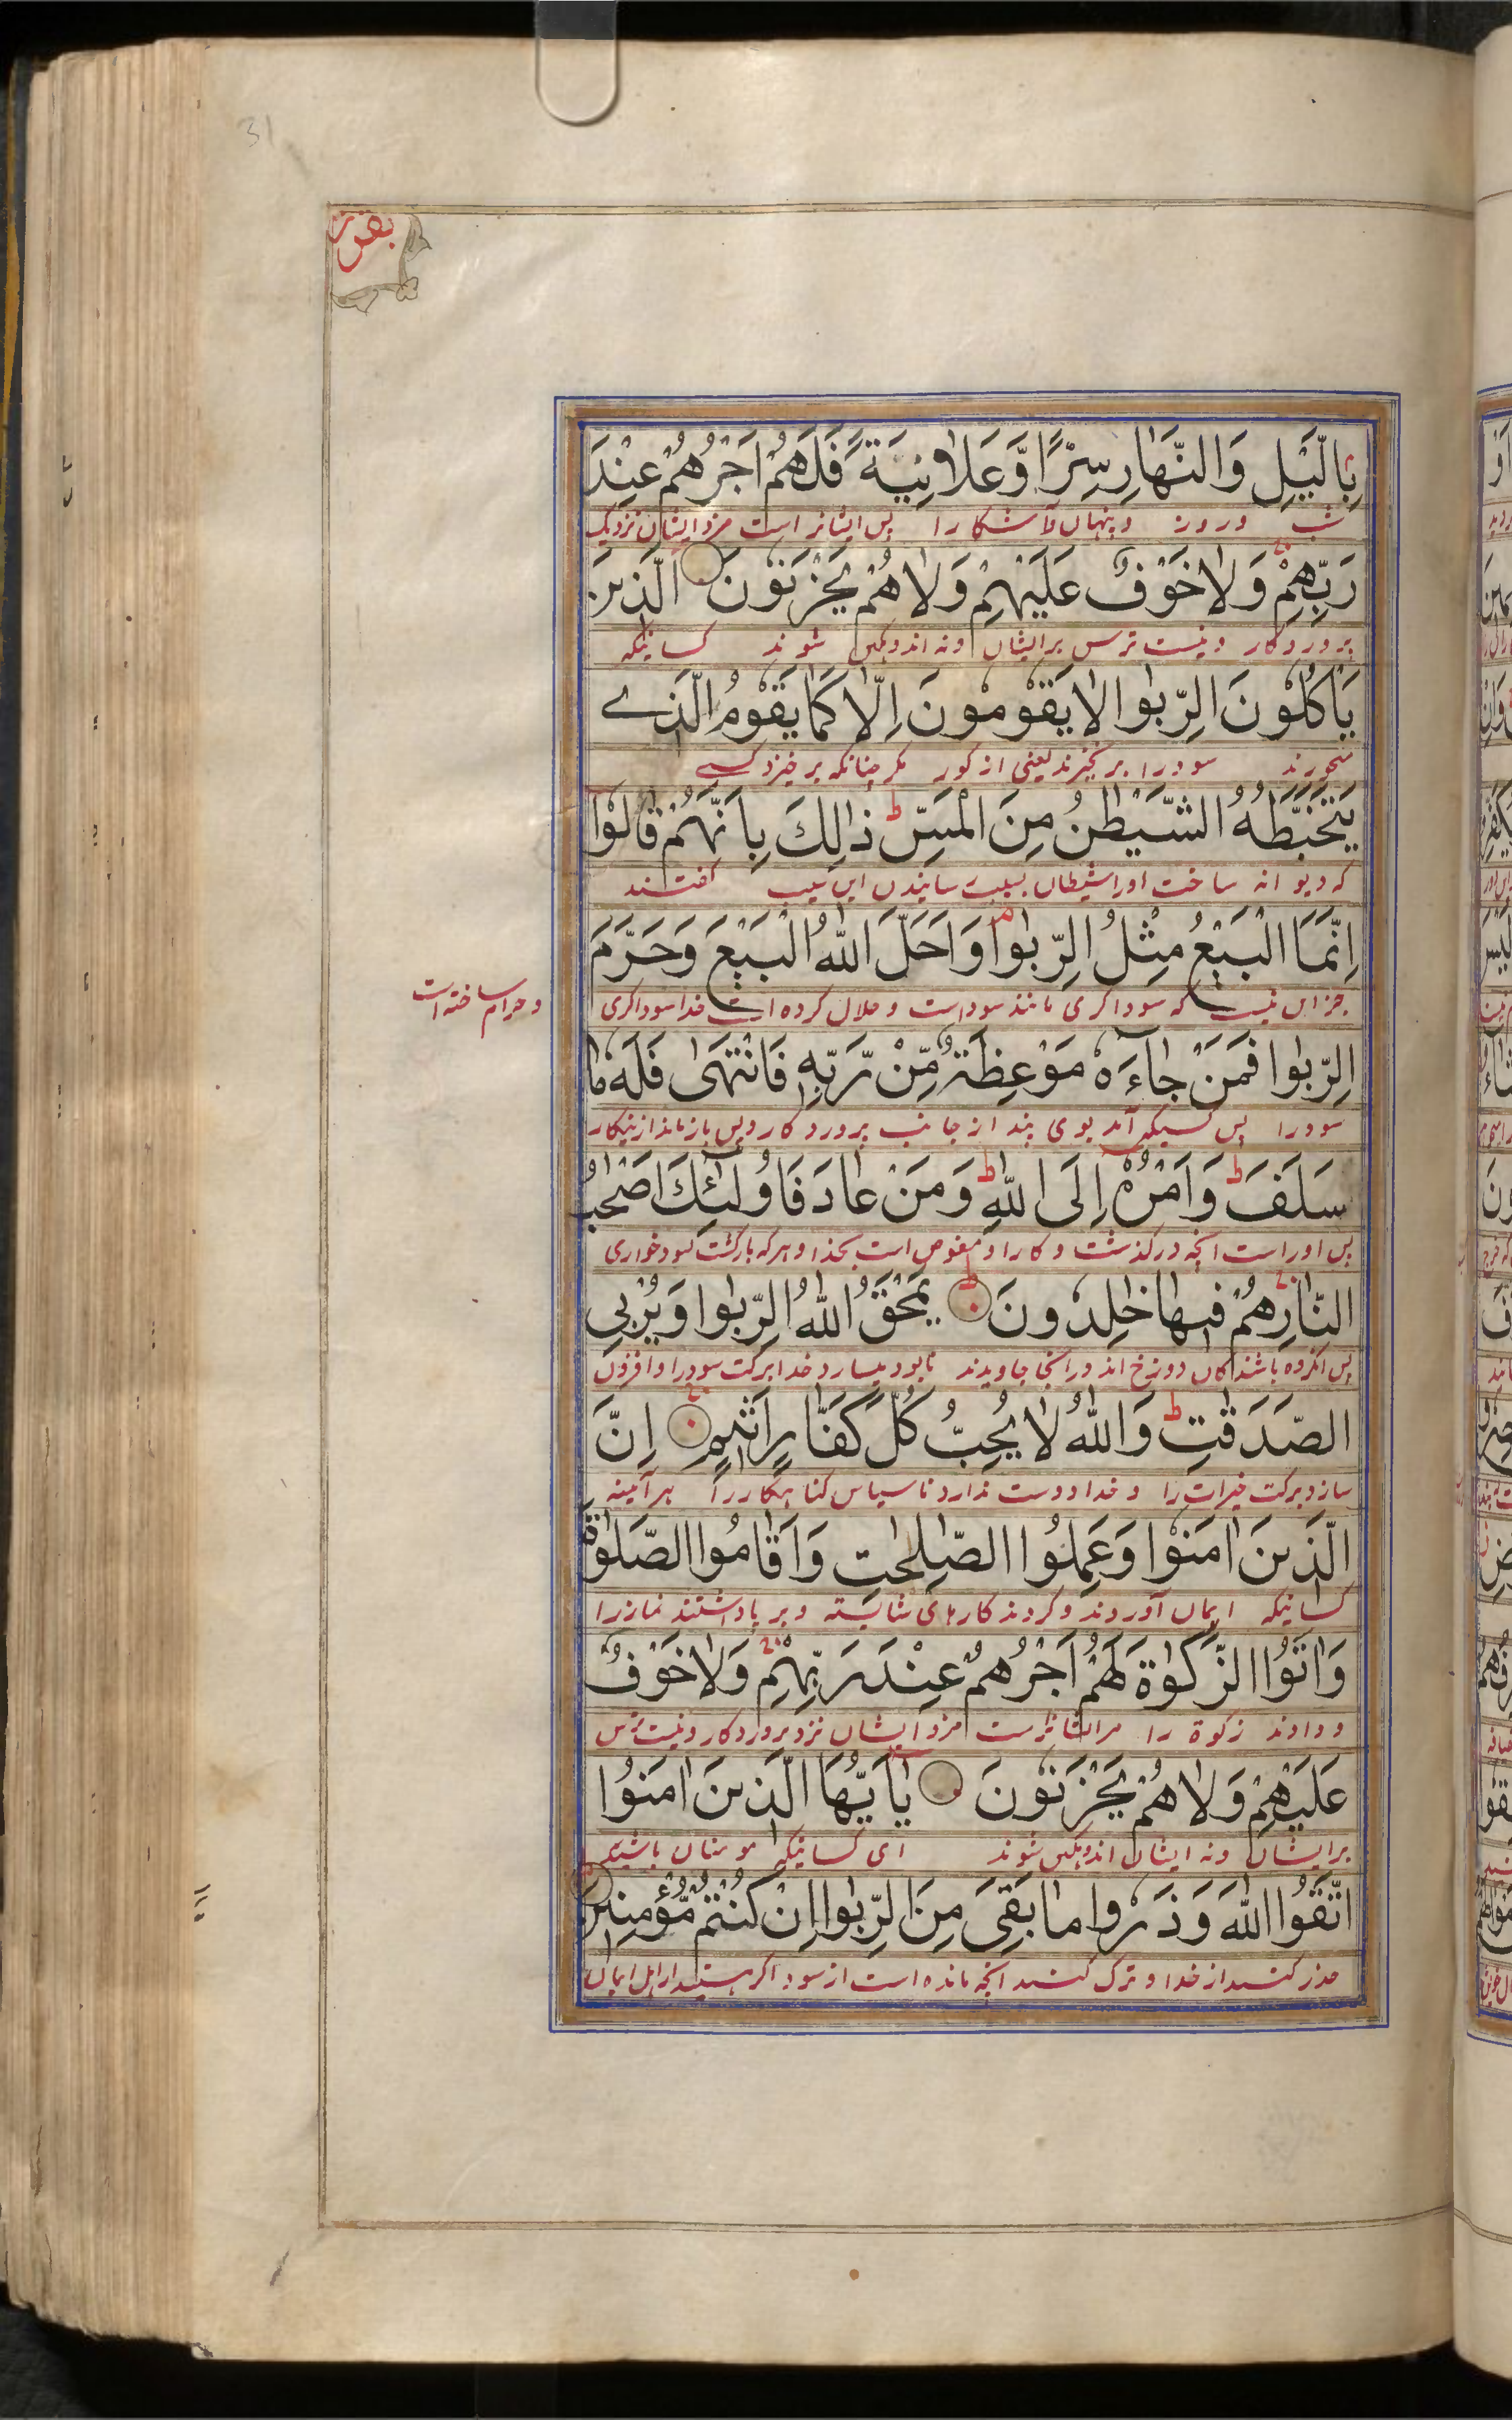 31
بقرة
بِالَّيْلِ وَالنَّهَارِ سِرًّا وَّعَلَانِيَةً فَلَهُمْ اَجْرُهُمْ عِنْدَ
شب وروز وپنهان وآشکارا پس ایشانراست مزد ایشان نزدیک
رَبِّهِمْ وَلَا خَوْفٌ عَلَيْهِمْ وَلَا هُمْ يَحْزَنُونَ الَّذِينَ
پروردکار ونیست ترس برایشان ونه اندوهکین شوند کسانیکه
يَأْكُلُونَ الرِّبٰوا لَا يَقُومُونَ اِلَّا كَمَا يَقُومُ الَّذِے
میخورند سودرا برنخیزند یعنی از کور مکر چنانکه برخیزد کسے
يَتَخَبَّطُهُ الشَّيْطٰنُ مِنَ الْمَسِّ ط ذٰالِكَ بِاَنَّهُمْ قَالُوْا
که دیوانه ساخت اورا شیطان بسبب سانیدن این بسبب کفتند
اِنَّمَا الْبَيْعُ مِثْلُ الرِّبٰوا م وَاَحَلَّ اللّٰهُ الْبَيْعَ وَحَرَّمَ
جز این نیست که سوداکری مانند سوداست وحلال کرده است خدا سوداکری
وحرام ساخته است
الرِّبٰوا فَمَنْ جَاءَهٗ مَوْعِظَةٌ مِّنْ رَّبِّهٖ فَانْتَهٰى فَلَهٗ مَا
سودرا پس کسیکه آمد بوی پند از جانب پروردکار وپس بازماند ازینکار
سَلَفَ ط وَاَمْرُهٗ اِلَى اللّٰهِ ط وَمَنْ عَادَ فَاُولٰئِكَ اَصْحٰبُ
پس اوراست آنچه درکذشت وکار او مفوض است بخدا وهرکه بازکشت بسودخواری
النَّارِ هُمْ فِيهَا خٰلِدُونَ يَمْحَقُ اللّٰهُ الرِّبٰوا وَيُرْبِى
پس آنکروه باشندکان دوزخ اند در آنجا جاویدند نابود میسازد خدا برکت سودرا وافزون
الصَّدَقٰتِ ط وَاللّٰهُ لَا يُحِبُّ كُلَّ كَفَّارٍ اَثِيمٍ اِنَّ
سازد برکت خیرات را وخدا دوست ندارد ناسپاس کناهکاررا هرآئینه
الَّذِينَ اٰمَنُوا وَعَمِلُوا الصّٰلِحٰتِ وَاَقَامُوا الصَّلٰوةَ
کسانیکه ایمان آوردند وکردند کارهای شایسته وبرپا داشتند نمازرا
وَاٰتَوُا الزَّكٰوةَ لَهُمْ اَجْرُهُمْ عِنْدَ رَبِّهِمْ وَلَا خَوْفٌ
ودادند زکوة را مرایشانراست مزد ایشان نزد پروردکار ونیست ترس
عَلَيْهِمْ وَلَا هُمْ يَحْزَنُونَ يٰاَيُّهَا الَّذِينَ اٰمَنُوا
برایشان ونه ایشان اندوهکین شوند ای کسانیکه مومنان باشید
اتَّقُوا اللّٰهَ وَذَرُوا مَا بَقِىَ مِنَ الرِّبٰوا اِنْ كُنْتُمْ مُّؤْمِنِينَ
حذر کنید از خدا وترک کنید آنچه مانده است از سود اکر هستید از اهل ایمان